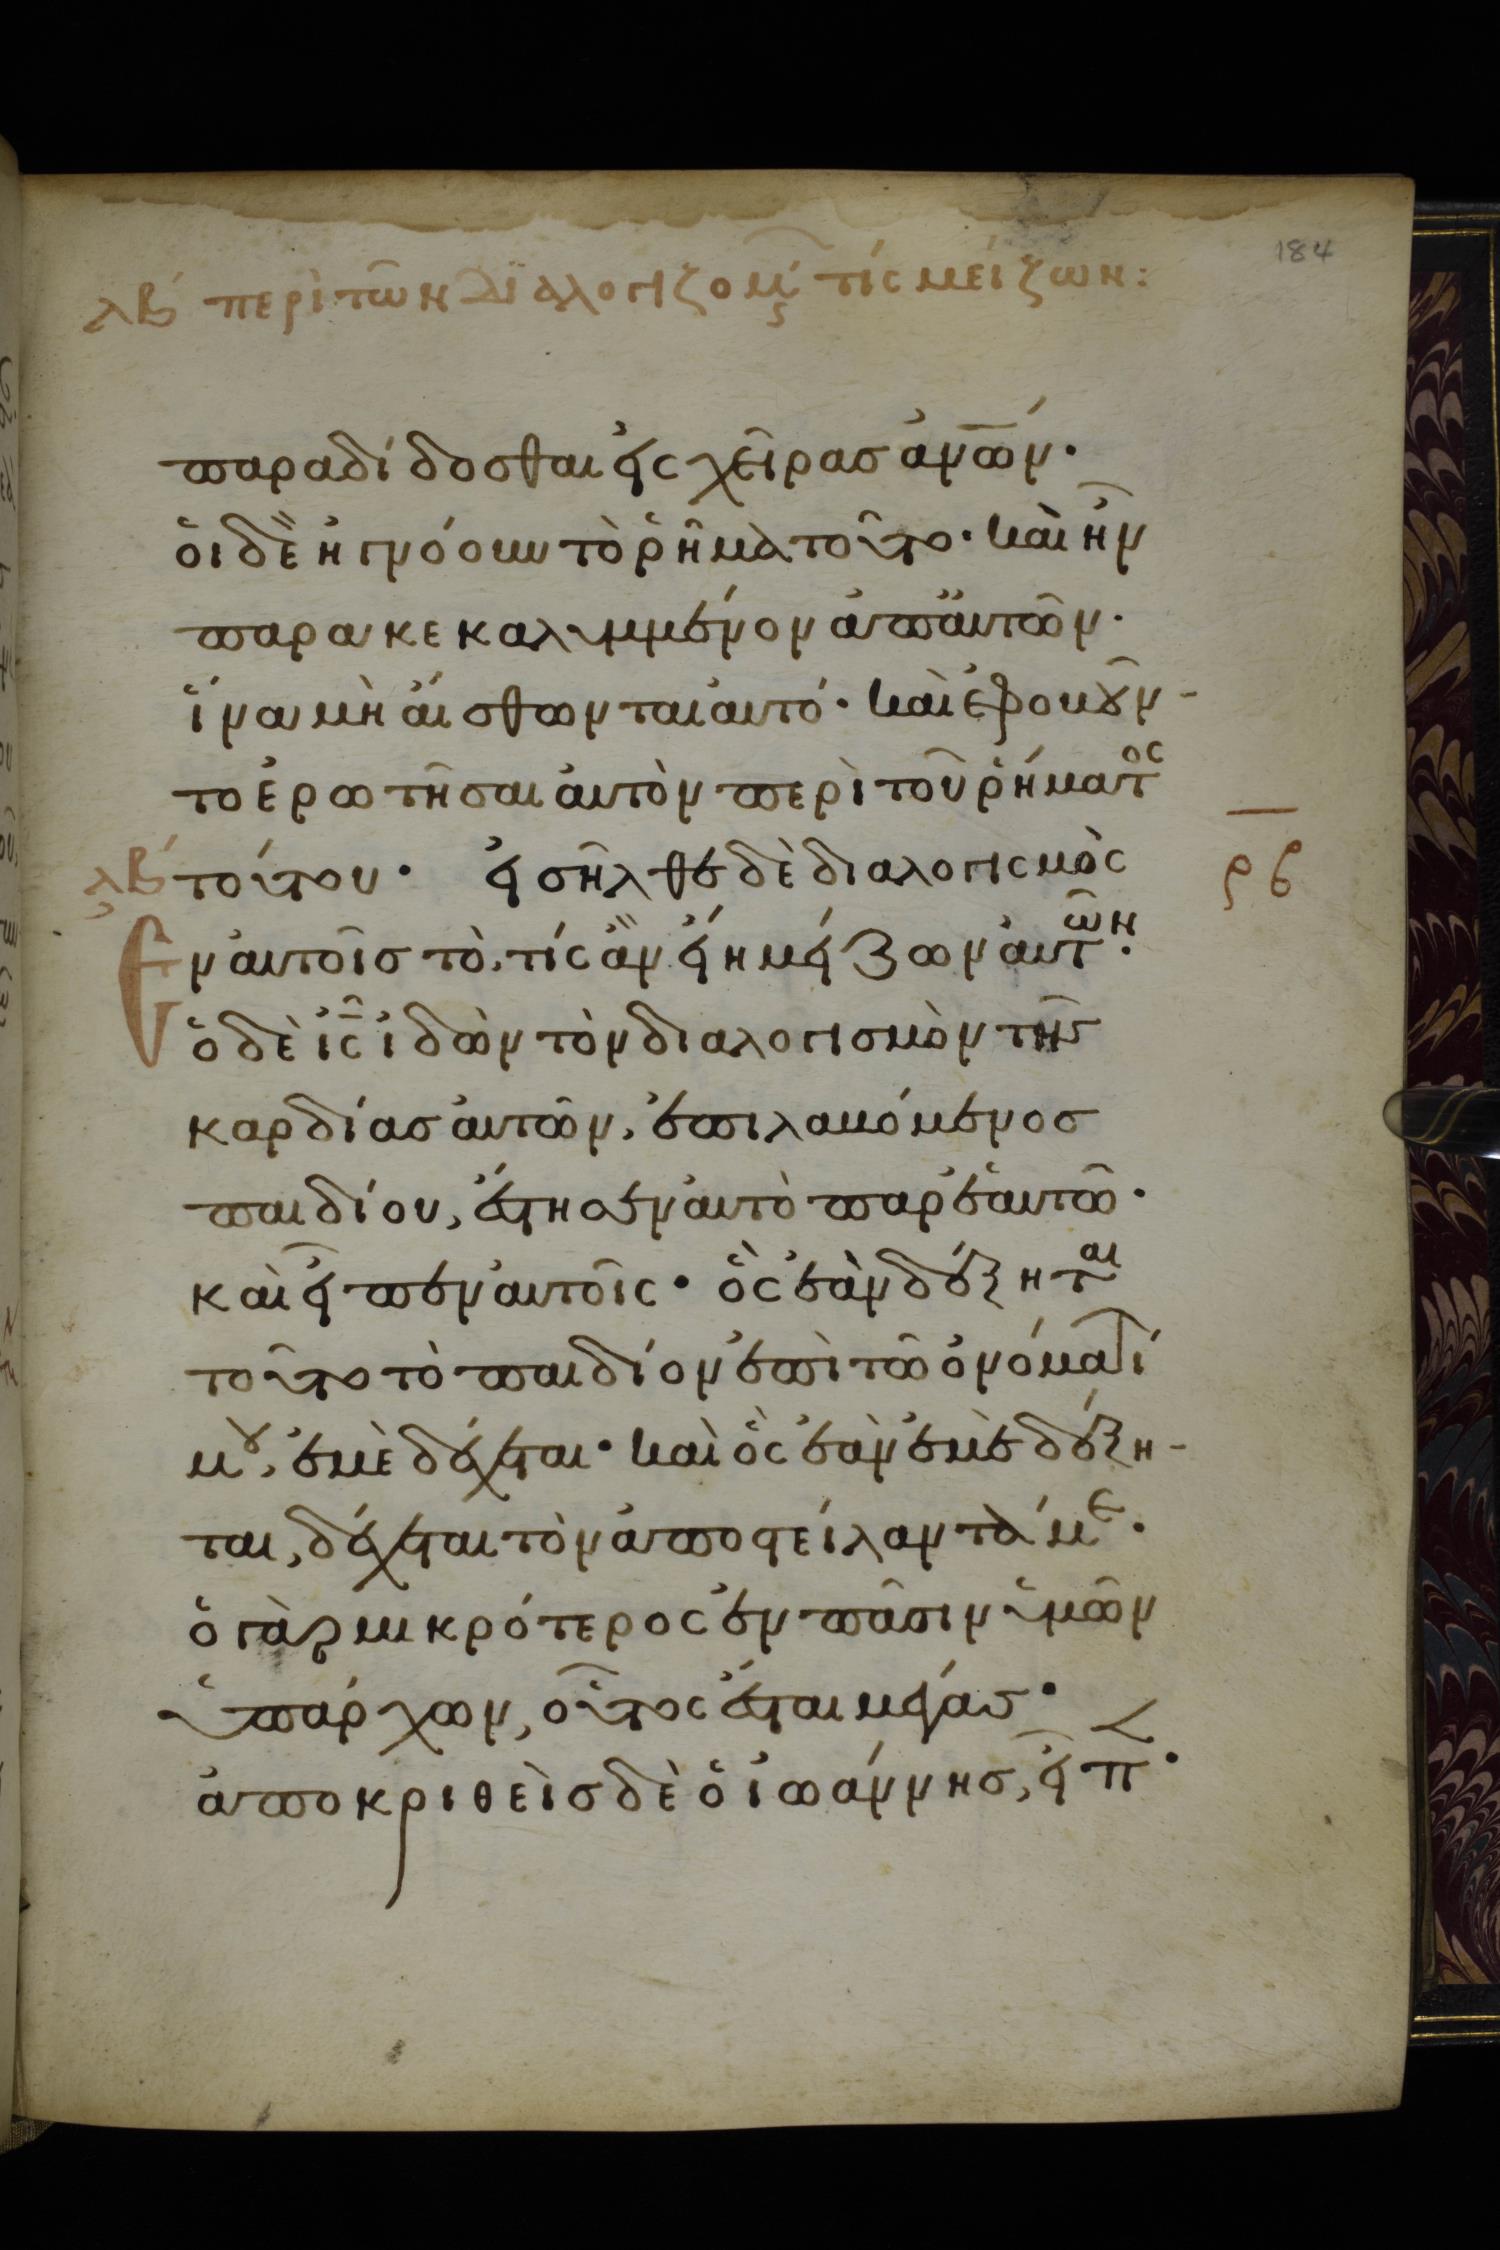 184
λβ περὶ τῶν διαλογιζομ τίς μείζων:
παραδίδοσθαι εἰς χεῖρασ ἀν̅ω̅ν·
ὁι δὲ ἠγνόουν τὸ ῥῆμα τοῦτο· καὶ ἦν
παρακεκαλυμμένον ἀπ ἀυτῶν·
ἵνα μὴ ἄισθωνται ἀυτό· καὶ ἐφοβοῦν-
το ἐρωτῆσαι ἀυτὸν περὶ τοῦ ῥήματος
λβ τούτου· εἰσῆλθε δὲ διαλογισμὸς
Ἐν ἀυτοῖσ τὸ, τίς ἂν εἴη μείζων ἀυτῶν·
ὁ δὲ ι̅ς̅ ἰδὼν τὸν διαλογισμὸν τῆσ
καρδίασ ἀυτῶν, ἐπιλαβόμενοσ
παιδίου, ἔστησεν ἀυτὸ παρ ἑαυτῶ·
καὶ εἶπεν ἀυτοῖς· ὃς ἐὰν δέξηται
τοῦτο τὸ παιδίον ἐπὶ τῶ ὀνόματί
μου, ἐμὲ δέχεται· καὶ ὃς ἐὰν ἐμὲ δέξη-
ται, δέχεται τὸν ἀποστείλαντά με·
ὁ γὰρ μικρότερος ἐν πᾶσιν ὑμῶν
ὑπάρχων, οὗτος ἔσται μέγασ·
ἀποκριθεὶσ δὲ ὁ ἰωάννησ, εἶπ·